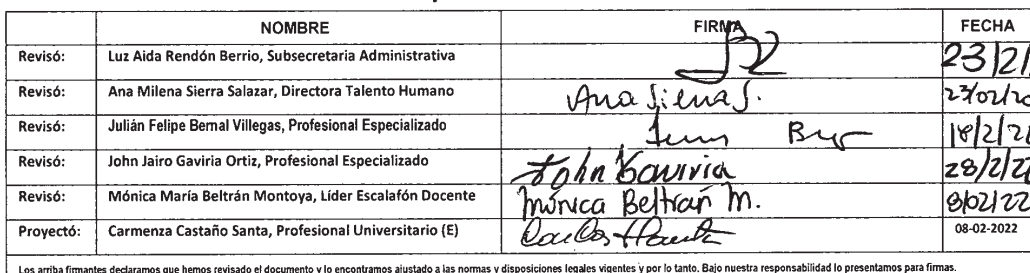 NOMBRE FIRMA FECHA
Revisó: Luz Aida Rendón Berrio, Subsecretaria Administrativa 23/2/
Revisó: Ana Milena Sierra Salazar, Directora Talento Humano Ana Sierra S. 23/02/20
Revisó: Julián Felipe Bernal Villegas, Profesional Especializado 18/2/2
Revisó: John Jairo Gaviria Ortiz, Profesional Especializado John Gaviria 28/2/22
Revisó: Mónica María Beltrán Montoya, Líder Escalafón Docente Mónica Beltrán M. 8/02/22
Proyectó: Carmenza Castaño Santa, Profesional Universitario (E) 08-02-2022
Los arriba firmantes declaramos que hemos revisado el documento y lo encontramos ajustado a las normas y disposiciones legales vigentes y por lo tanto. Bajo nuestra responsabilidad lo presentamos para firmas.